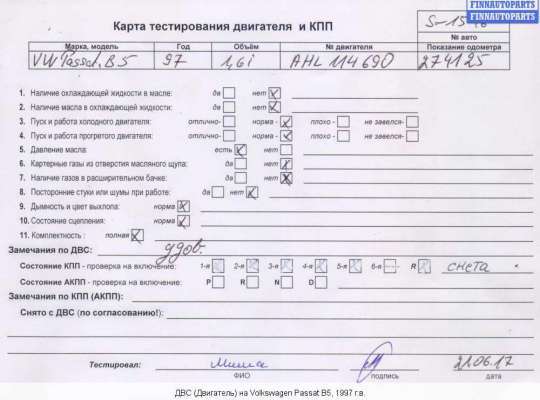 FINNAUTOPARTS
FINNAUTOPARTS
Карта тестирования двигателя и КПП
№ авто
Марка, модель Год Объём № двигателя Показание одометра
VW Passat B5 97 1,6i AHL 114690 274125
1. Наличие охлаждающей жидкости в масле: да нет
2. Наличие масла в охлаждающей жидкости: да нет
3. Пуск и работа холодного двигателя: отлично- норма - плохо - не завелся-
4. Пуск и работа прогретого двигателя: отлично- норма - плохо - не завелся-
5. Давление масла: есть нет
6. Картерные газы из отверстия масляного щупа: да нет
7. Наличие газов в расширительном бачке: да нет
8. Посторонние стуки или шумы при работе: да нет
9. Дымность и цвет выхлопа: норма
10. Состояние сцепления: норма
11. Комплектность : полная
Замечания по ДВС: удов.
Состояние КПП - проверка на включение: 1-я 2-я 3-я 4-я 5-я 6-я R снята
Состояние АКПП - проверка на включение: P R N D
Замечания по КПП (АКПП):
Снято с ДВС (по согласованию!):
Тестировал: Миша 21.06.17
ФИО подпись дата
ДВС (Двигатель) на Volkswagen Passat B5, 1997 г.в.